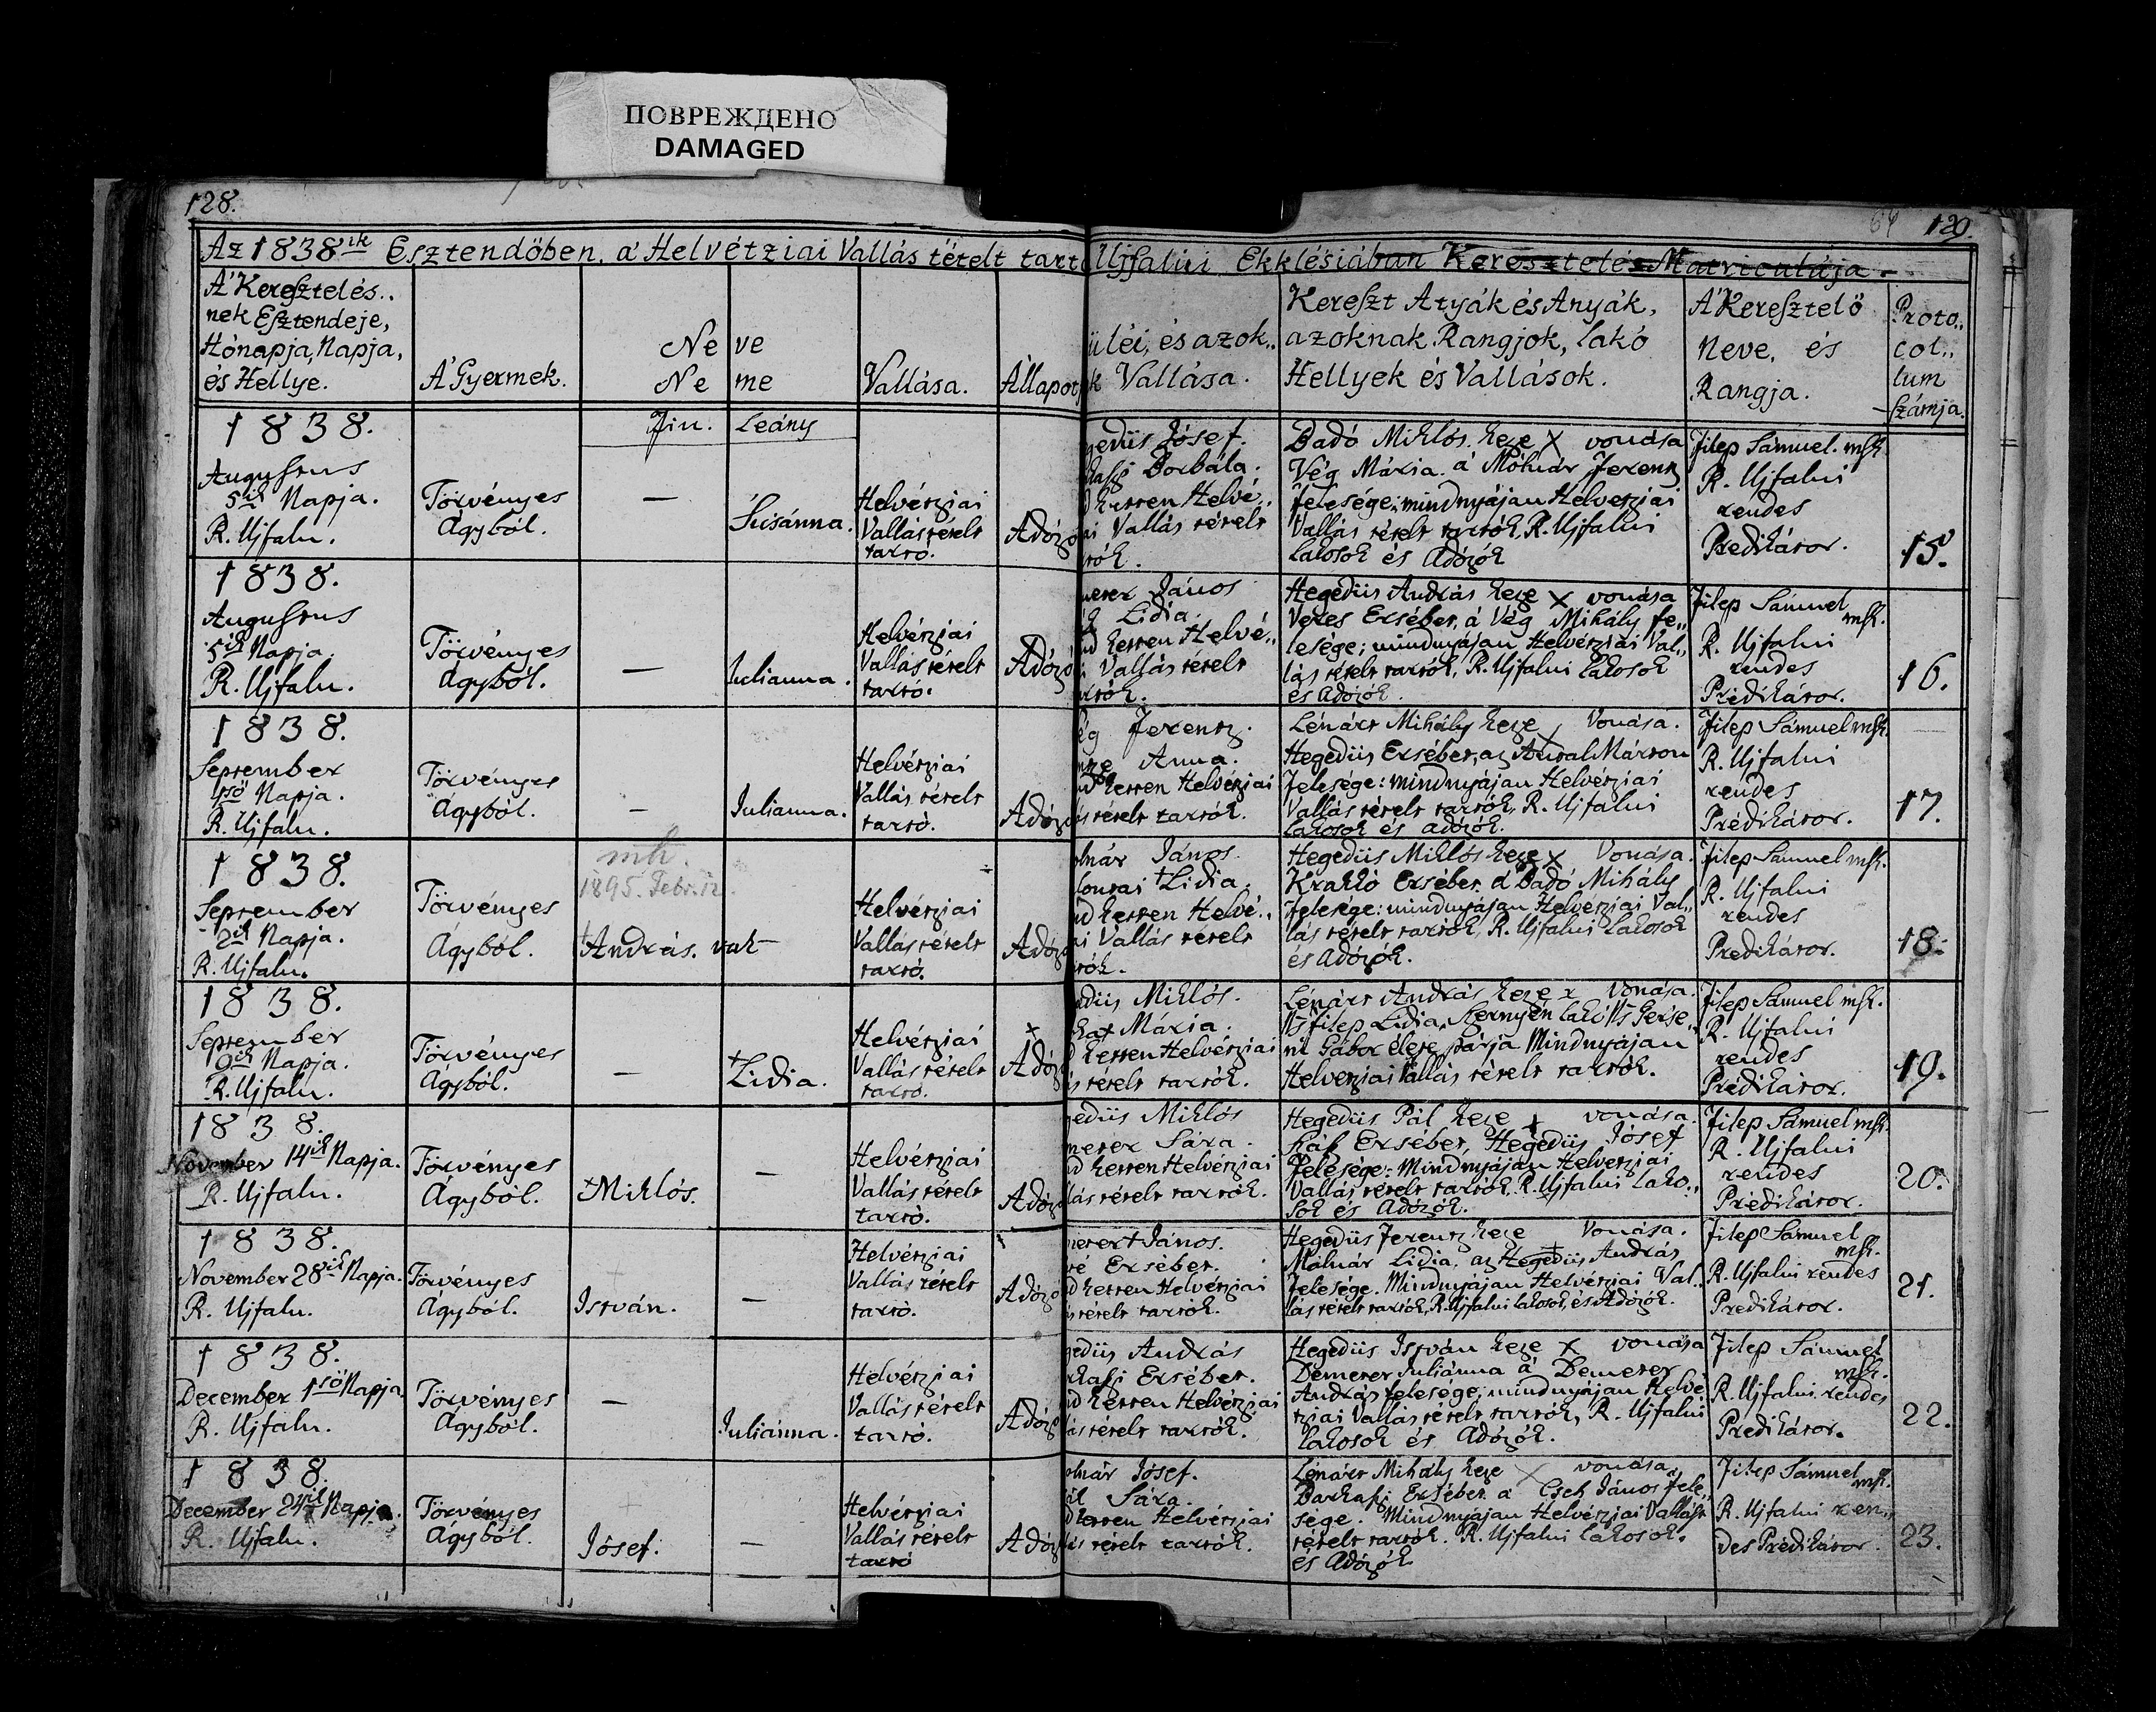 ПОВРЕЖДЕНО
DAMAGED
128.
64 129.
Az 1838ik Esztendöben, a' Helvétziai Vallás tételt tartó Ujfalui Ekklésiában Keresztelés Matriculája.
A' Keresztelés..
nek Esztendeje,
Hónapja, Napja,
és Hellye.
A' Gyermek.
Ne ve
Ne me
Vallása.
Állapot
üléi, és azok..
k Vallása.
Kereszt Atyák és Anyák,
azoknak Rangjok, lakó
Hellyek és Vallások.
A' Keresztelö
Neve, és
Rangja.
Proto..
col..
lum
Számja.
Fiu. Leány
1838.
Augustus
5ik Napja.
R. Ujfalu.
Törvényes
Ágyból.
—
Susánna.
Helvétziai
Vallás tételt
tartó.
Adózó
gedüs Jósef.
Borbála.
d ketten Helvé..
ai Vallás tételt
tók.
Badó Miklós keze X vonása
Vég Mária. a' Mólnár Ferentz
felesége; mindnyájan Helvetziai
Vallás tételt tartók, R. Ujfalui
lakosok és Adózók
Filep Sámuel. mk.
R. Ujfalui
rendes
Prédikátor.
15.
1838.
Augustus
5ik Napja.
R. Ujfalu.
Törvényes
Ágyból.
—
Julianna.
Helvétziai
Vallás tételt
tartó.
Adózó
meter János
g Lidia.
nd ketten Helvé..
i Vallás tételt
rtók.
Hegedüs András keze X vonása
Veres Ersébet, a' Vég Mihály fe..
lesége; mindnyájan Helvétziai Val..
lás tételt tartók, R. Ujfalui lakosok
és Adózók.
Filep Sámuel
mk.
R. Ujfalui
rendes
Prédikátor.
16.
1838.
September
1sö Napja.
R. Ujfalu.
Törvényes
Ágyból.
—
Julianna.
Helvétziai
Vallás tételt
tartó.
Adózó
ég Ferentz.
Anna.
nd ketten Helvétziai
ás tételt tartók.
Lénárt Mihály keze X Vonása.
Hegedüs Ersébet, az Antal Márton
felesége: mindnyájan Helvétziai
Vallás tételt tartók, R. Ujfalui
lakosok és adózók.
Filep Sámuel mk.
R. Ujfalui
rendes
Prédikátor.
17.
1838.
September
2ik Napja.
R. Ujfalu.
Törvényes
Ágyból.
mh.
1895. Febr. 12.
+András. volt
Helvétziai
Vallás tételt
tartó.
Adózó
olnár János.
+Lidia.
nd ketten Helvé..
ai Vallás tételt
tók.
Hegedüs Miklós keze X Vonása.
Krakkó Ersébet. a' Badó Mihály
felesége: mindnyájan Helvétziai Val..
lás tételt tartók, R. Ujfalui lakosok
és Adózók.
Filep Sámuel mk.
R. Ujfalui
rendes
Prédikátor.
18.
1838.
September
9ik Napja.
R. Ujfalu.
Törvényes
Ágyból.
—
+Lidia.
Helvétziai
Vallás tételt
tartó.
+
Adózó
edüs Miklós.
Mária.
d ketten Helvétziai
ás tételt tartók.
Lénárt András keze x vonása.
Ns Filep Lidia, lakó Ns
Gábor élete párja Mindnyájan
Helvetziai Vallás tételt tartók.
Filep Sámuel mk.
R. Ujfalui
rendes
Prédikátor.
19.
1838.
November 14ik Napja.
R. Ujfalu.
Törvényes
Ágyból.
+Miklós.
—
Helvétziai
Vallás tételt
tartó.
Adózó
gedüs Miklós
meter Sára.
d ketten Helvétziai
lás tételt tartók.
Hegedüs Pál keze X vonása.
Ersébet, Hegedüs Jósef
felesége: Mindnyáján Helvetziai
Vallás tételt tartók. R. Ujfalui lako..
sok és Adózók.
Filep Sámuel mk.
R. Ujfalui
rendes
Prédikátor.
20.
1838.
November 28ik Napja.
R. Ujfalu.
Törvényes
Ágyból.
István.
—
Helvétziai
Vallás tételt
tartó.
Adózó
meter+János.
Ersébet.
d ketten Helvétziai
ás tételt tartók.
Hegedüs Ferentz keze + Vonása.
Mólnár Lidia, az Hegedüs András
felesége. Mindnyájan Helvétziai Val..
lás tételt tartók, R. Ujfalui lakosok, és Adózók.
Filep Sámuel
mk.
R. Ujfalui rendes
Prédikátor.
21.
1838.
December 1sö Napja
R. Ujfalu.
Törvényes
Ágyból.
—
Juliánna.
Helvétziai
Vallás tételt
tartó.
Adózó
gedüs András
Ersébet.
nd ketten Helvétziai
ás tételt tartók.
Hegedüs István keze X vonása
Demeter Juliánna a' Demeter
András felesége; mindnyájan Helvé
tziai Vallás tételt tartók, R. Ujfalui
lakosok és Adózók.
Filep Sámuel
mk.
R. Ujfalui rendes
Prédikátor.
22.
1838.
December 24ik Napja.
R. Ujfalu.
Törvényes
Ágyból.
Jósef.
—
Helvétziai
Vallás tételt
tartó
Adózó
olnár Jósef.
Sára.
d ketten Helvétziai
ás tételt tartók.
Lénárt Mihály keze X vonása,
Barkaszi Ersébet a' Cseh János fele..
sége. Mindnyájan Helvétziai Vallást
tételt tartók. R. Ujfalui lakosok.
és Adózók
Filep Sámuel
mk.
R. Ujfalui ren..
des Prédikátor.
23.